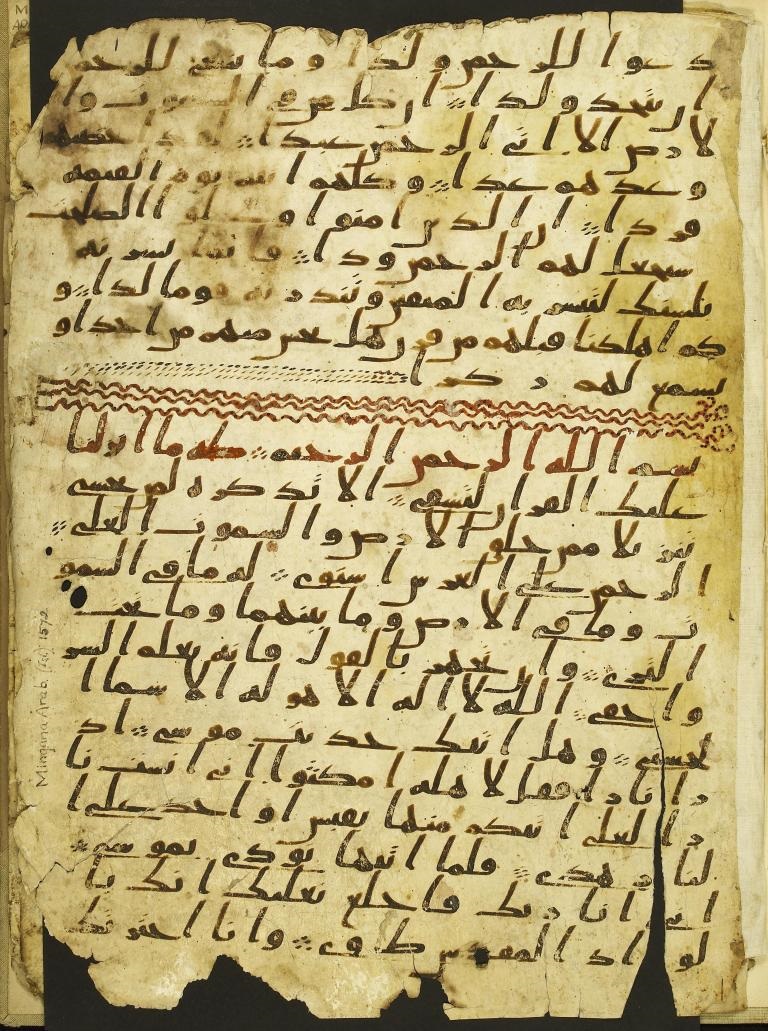 دعوا للرحمن ولدا وما ينبغي للرحمن
ان يتخذ ولدا ان كل من في السموت وا
لارض الا اتي الرحمن عبدا لقد احصيهم
وعدهم عدا وكلهم اتيه يوم القيمة
فردا ان الذين امنوا وعملوا الصلحت
سيجعل لهم الرحمن ودا فانما يسرنه
بلسنك لتبشر به المتقين وتنذر به قوما لدا و
كم اهلكنا قبلهم من قرن هل تحس منهم من احد او
تسمع لهم ركزا
بسم الله الرحمن الرحيم طه ما انزلنا
عليك القران لتشقى الا تذكرة لمن يخشى
تنزيلا ممن خلق الارض والسموت العلى
الرحمن على العرش استوى له ما في السمو
ت وما في الارض وما بينهما وما تحت
الثرى وان تجهر بالقول فانه يعلم السر
واخفى الله لا اله الا هو له الاسما ا
لحسنى وهل اتيك حديث موسى اذ
را نارا فقل لاهله امكثوا اني انست نا
را لعلي اتيكم منها بقبس او اجد على ا
لنار هدى فلما اتيها نودي يموسى
اني انا ربك فاخلع نعليك انك با
لواد المقدس طوى وانا اخترتك
Mingana Arab. 1572